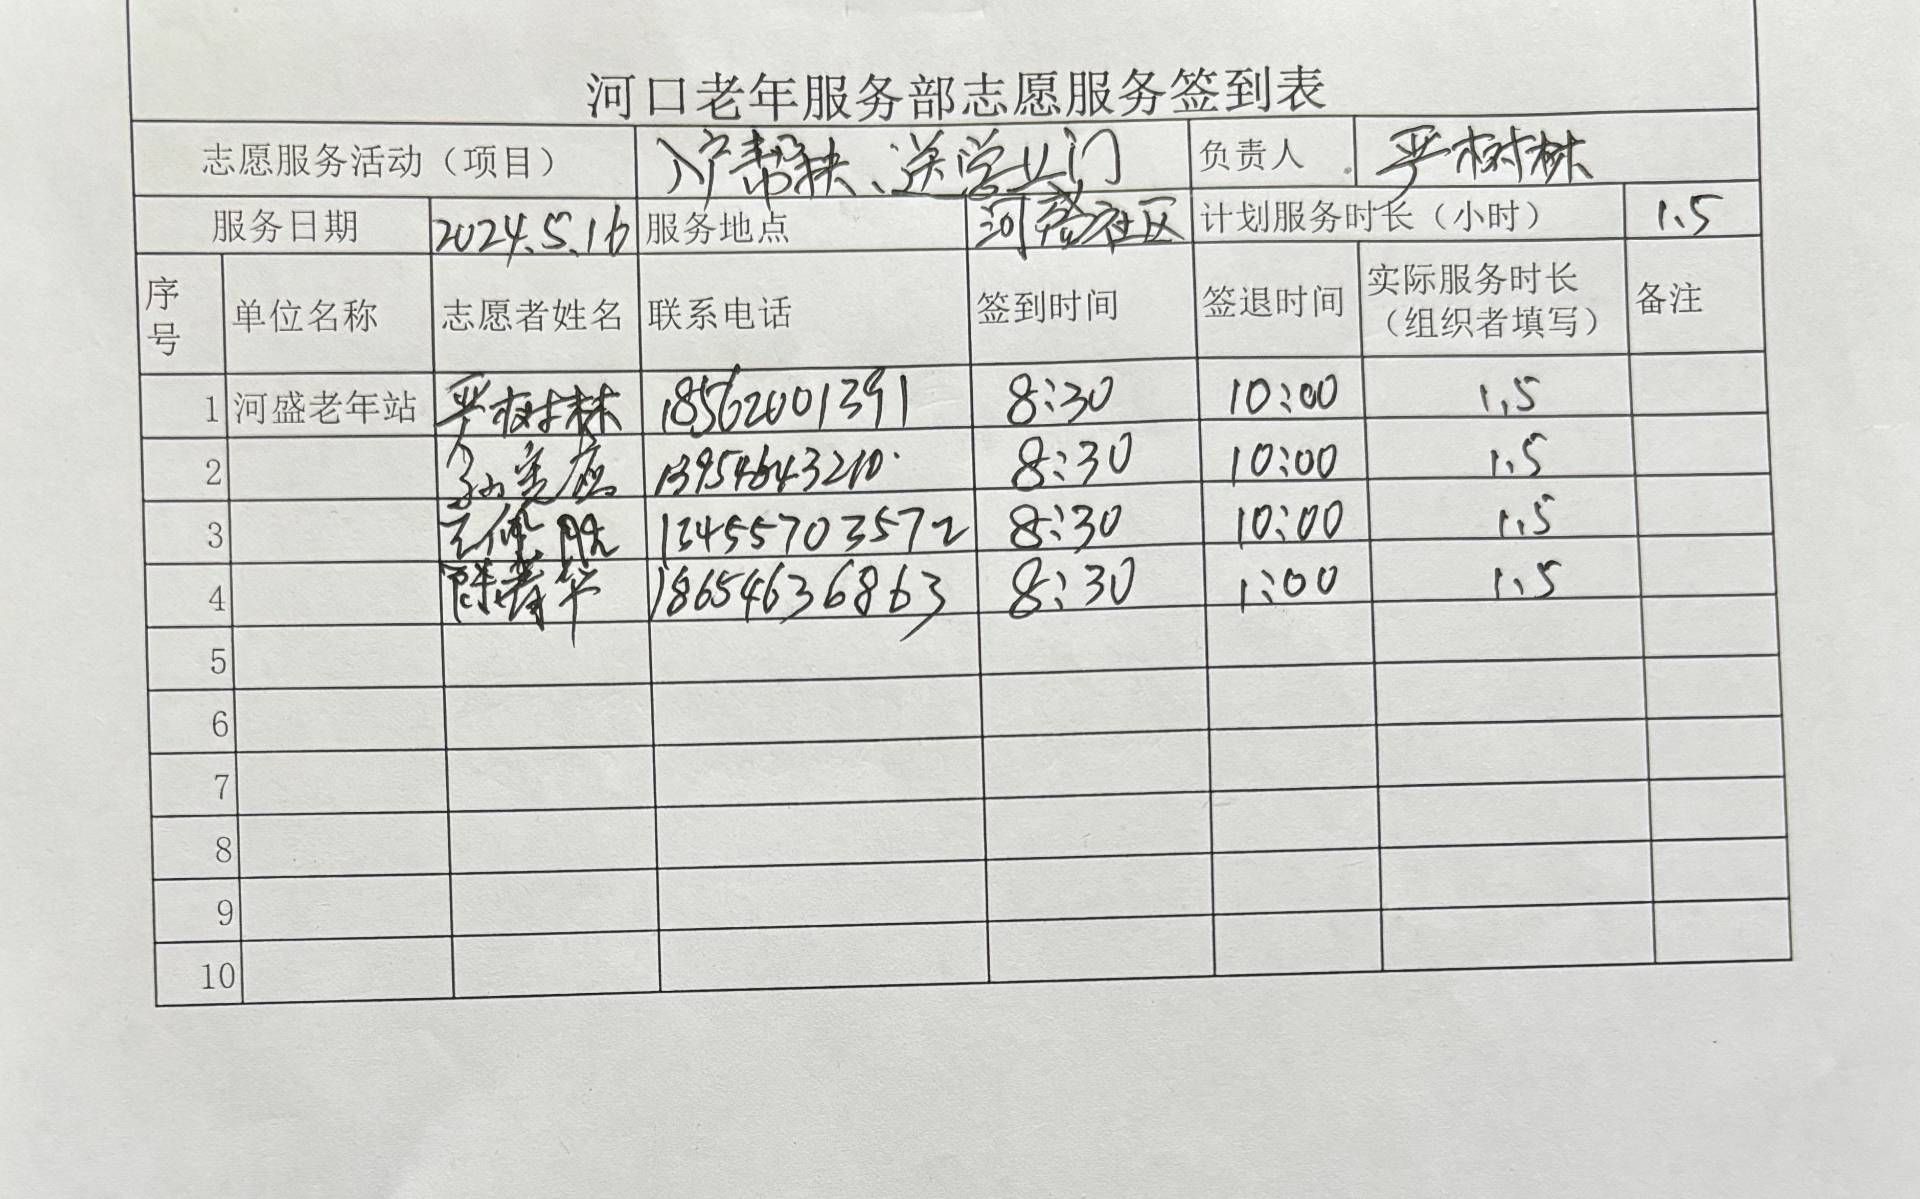 河口老年服务部志愿服务签到表
志愿服务活动（项目） 入户帮扶、送学上门 负责人 严树林
服务日期 2024.5.16 服务地点 河盛社区 计划服务时长（小时） 1.5
序号 单位名称 志愿者姓名 联系电话 签到时间 签退时间 实际服务时长（组织者填写） 备注
1 河盛老年站 严树林 18562001391 8:30 10:00 1.5
2 13954643210 8:30 10:00 1.5
3 13455703572 8:30 10:00 1.5
4 18654636863 8:30 1:00 1.5
5
6
7
8
9
10